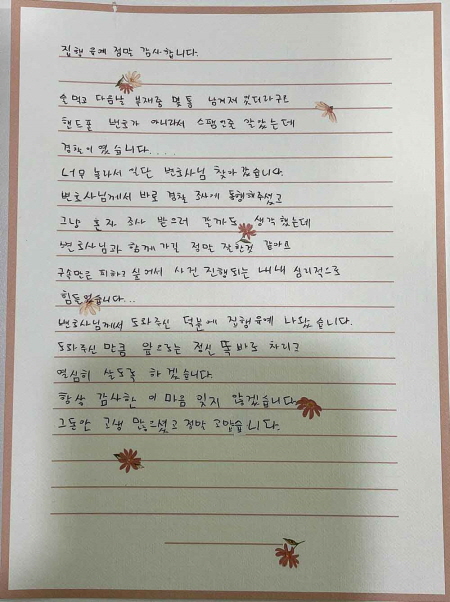 집행 유예 정말 감사합니다.
술 먹고 다음날 부재중 몇 통 남겨져 있더라구요
핸드폰 번호가 아니라서 스팸인줄 알았는데
경찰이 였습니다....
너무 놀라서 일단 변호사님 찾아 갔습니다.
변호사님께서 바로 경찰 조사에 동행해주셨고
그냥 혼자 조사 받으러 갈까도 생각했는데
변호사님과 함께 가길 정말 잘한것 같아요
구속만은 피하고 싶어서 사건 진행되는 내내 심리적으로
힘들었습니다...
변호사님께서 도와주신 덕분에 집행유예 나왔습니다.
도와주신 만큼 앞으로는 정신 똑바로 차리고
열심히 살도록 하겠습니다.
항상 감사한 이 마음 잊지 않겠습니다.
그동안 고생 많으셨고 정말 고맙습니다.